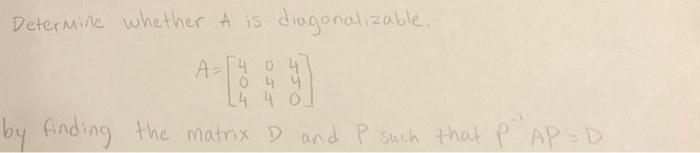 Determine whether A is diagonalizable.
A = [4 0 4
0 4 4
4 4 0]
by finding the matrix D and P such that P⁻¹AP = D